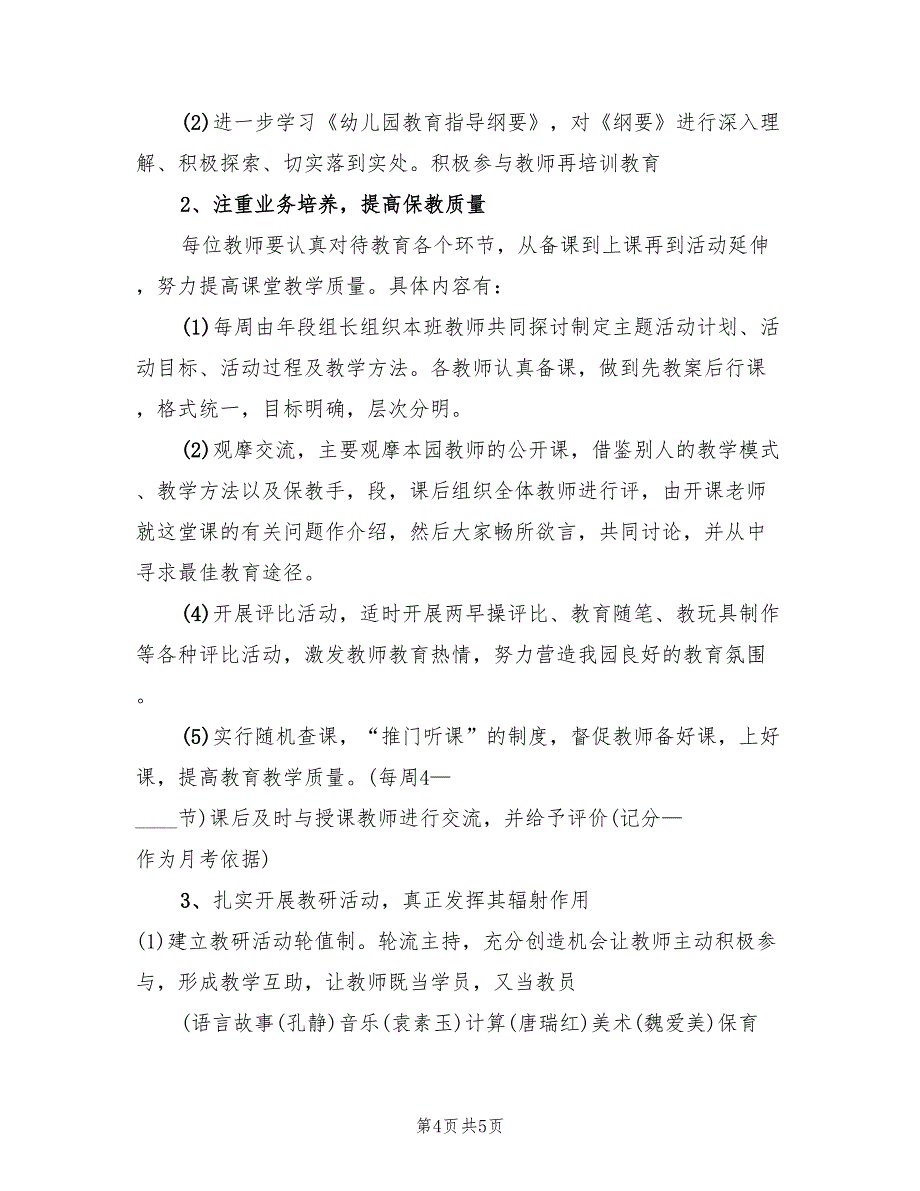 (2)进一步学习《幼儿园教育指导纲要》，对《纲要》进行深入理
解、积极探索、切实落到实处。积极参与教师再培训教育
2、注重业务培养，提高保教质量
每位教师要认真对待教育各个环节，从备课到上课再到活动延伸
，努力提高课堂教学质量。具体内容有：
(1)每周由年段组长组织本班教师共同探讨制定主题活动计划、活
动目标、活动过程及教学方法。各教师认真备课，做到先教案后行课
，格式统一，目标明确，层次分明。
(2)观摩交流，主要观摩本园教师的公开课，借鉴别人的教学模式
、教学方法以及保教手，段，课后组织全体教师进行评，由开课老师
就这堂课的有关问题作介绍，然后大家畅所欲言，共同讨论，并从中
寻求最佳教育途径。
(4)开展评比活动，适时开展两早操评比、教育随笔、教玩具制作
等各种评比活动，激发教师教育热情，努力营造我园良好的教育氛围
。
(5)实行随机查课，“推门听课”的制度，督促教师备好课，上好
课，提高教育教学质量。(每周4—
____节)课后及时与授课教师进行交流，并给予评价(记分—
作为月考依据)
3、扎实开展教研活动，真正发挥其辐射作用
(1)建立教研活动轮值制。轮流主持，充分创造机会让教师主动积极参
与，形成教学互助，让教师既当学员，又当教员
(语言故事(孔静)音乐(袁素玉)计算(唐瑞红)美术(魏爱美)保育
第4页共5页